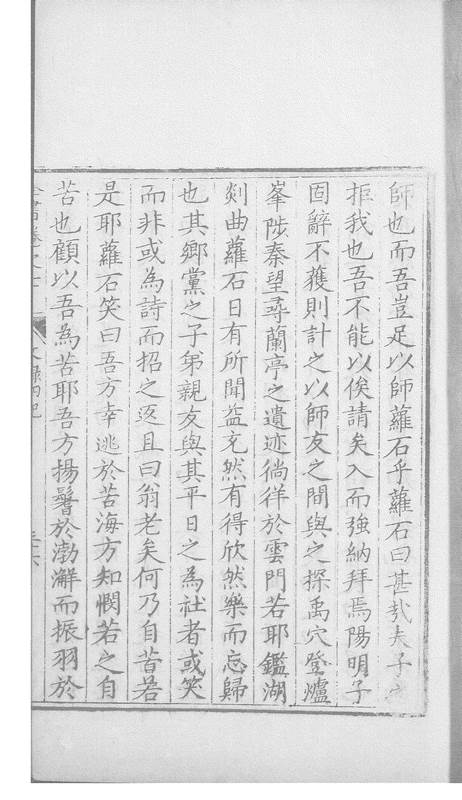 師也而吾豈足以師蘿石乎蘿石曰甚哉夫子之
拒我也吾不能以俟請矣入而強納拜焉陽明子
固辭不獲則許之以師友之間與之探禹穴登爐
峯陟秦望尋蘭亭之遺迹徜徉於雲門若耶鑑湖
剡曲蘿石日有所聞益充然有得欣然樂而忘歸
也其鄉黨之子弟親友與其平日之為社者或笑
而非或為詩而招之返且曰翁老矣何乃自苦若
是耶蘿石笑曰吾方幸逃於苦海方知憫若之自
苦也顧以吾為苦耶吾方揚鬐於渤澥而振羽於